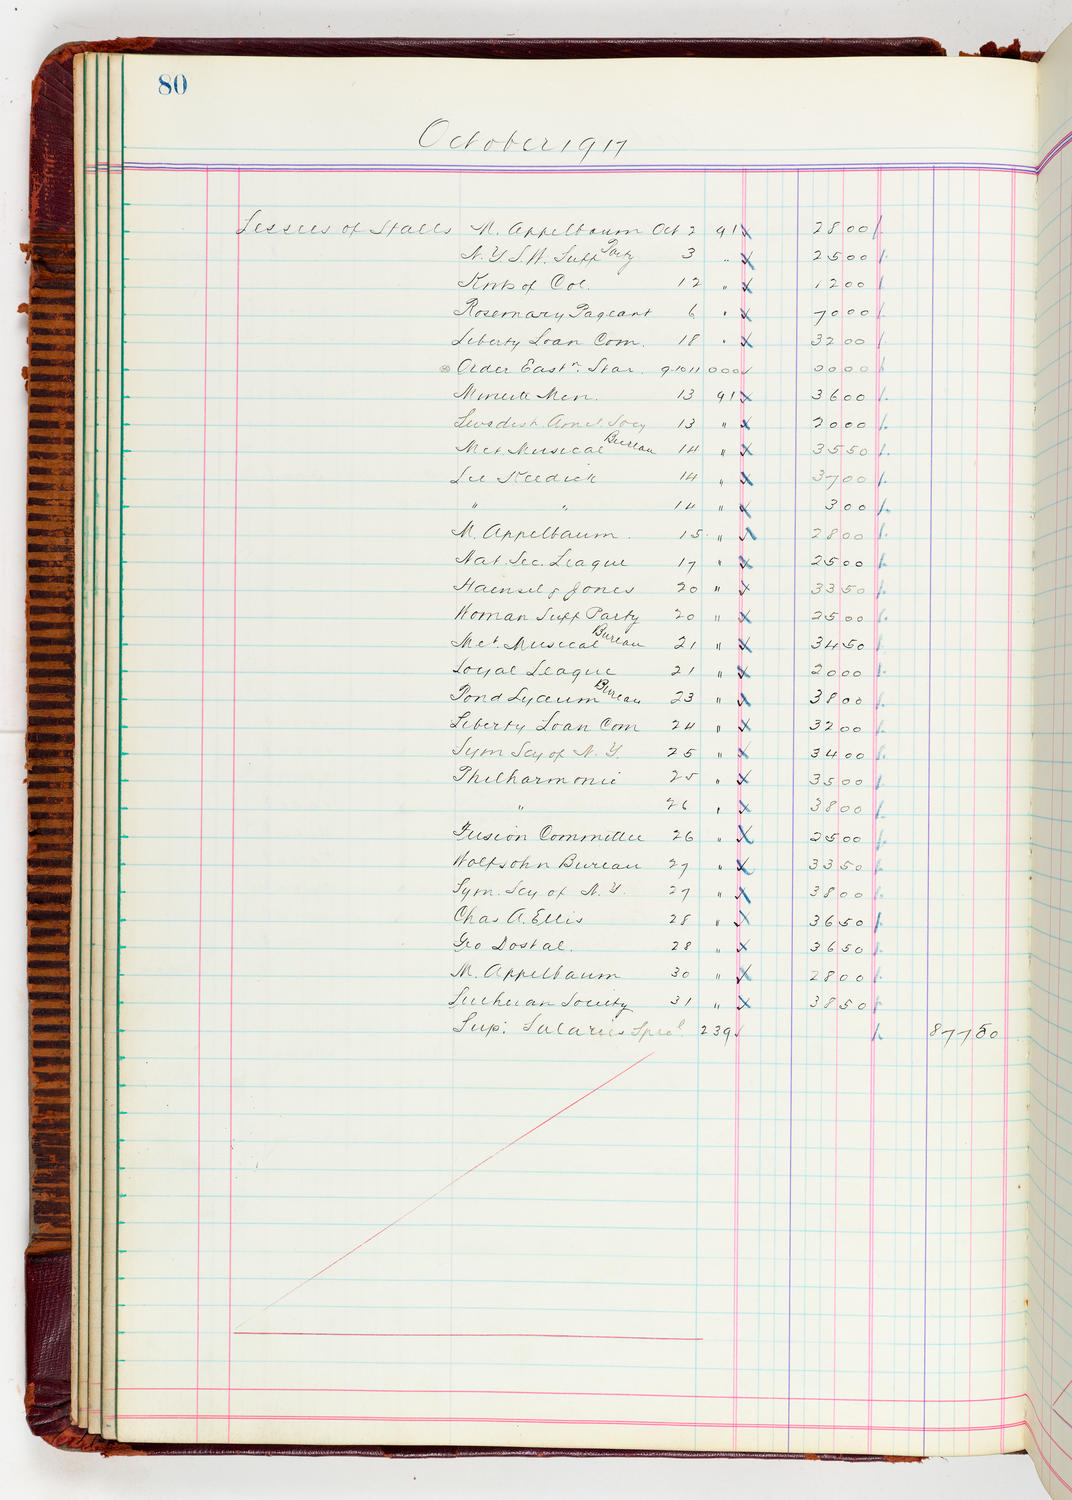 80
October 1917
Lessees of Halls M. Appelbaum Oct 2 91 2800
N.Y.S.W. Suff Party 3 " 2500
Knts of Col. 12 " 1200
Rosemary Pageant 6 " 7000
Liberty Loan Com. 18 " 3200
Order Eastn. Star. 9 10 11 000 0000
Minute Men. 13 91 3600
Swedish Amer Socy 13 " 2000
Met Musical Bureau 14 " 3550
Lee Keedick 14 " 3700
" " 14 " 300
M. Appelbaum. 15 " 2800
Nat. Sec. League 17 " 2500
Haensel & Jones 20 " 3350
Woman Suff Party 20 " 2500
Met. Musical Bureau 21 " 3450
Loyal League 21 " 2000
Pond Lyceum Bureau 23 " 3800
Liberty Loan Com 24 " 3200
Sym Scy of N.Y. 25 " 3400
Philharmonic 25 " 3500
" 26 " 3800
Fusion Committee 26 " 2500
Wolfsohn Bureau 27 " 3350
Sym. Scy of N.Y. 27 " 3800
Chas A. Ellis 28 " 3650
Geo Dostal. 28 " 3650
M. Appelbaum 30 " 2800
Lutheran Society 31 " 3850
Sup: Salaries Specl 239 87750